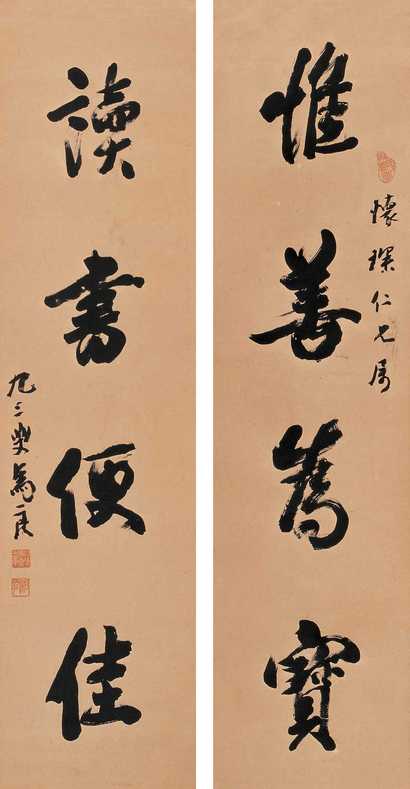 懷琛仁兄属
惟善為寶
讀書便佳
九三叟馬良